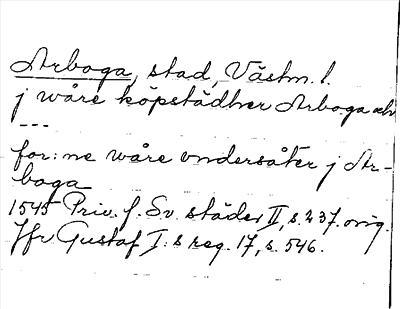 Arboga, stad, Västm. l.
j wåre köpstädher Arboga och
---
for:ne wåre vndersåter j Ar-
boga
1545 Priv. f. Sv. städer II, s. 237. orig.
Jfr Gustaf I:s reg. 17, s. 546.